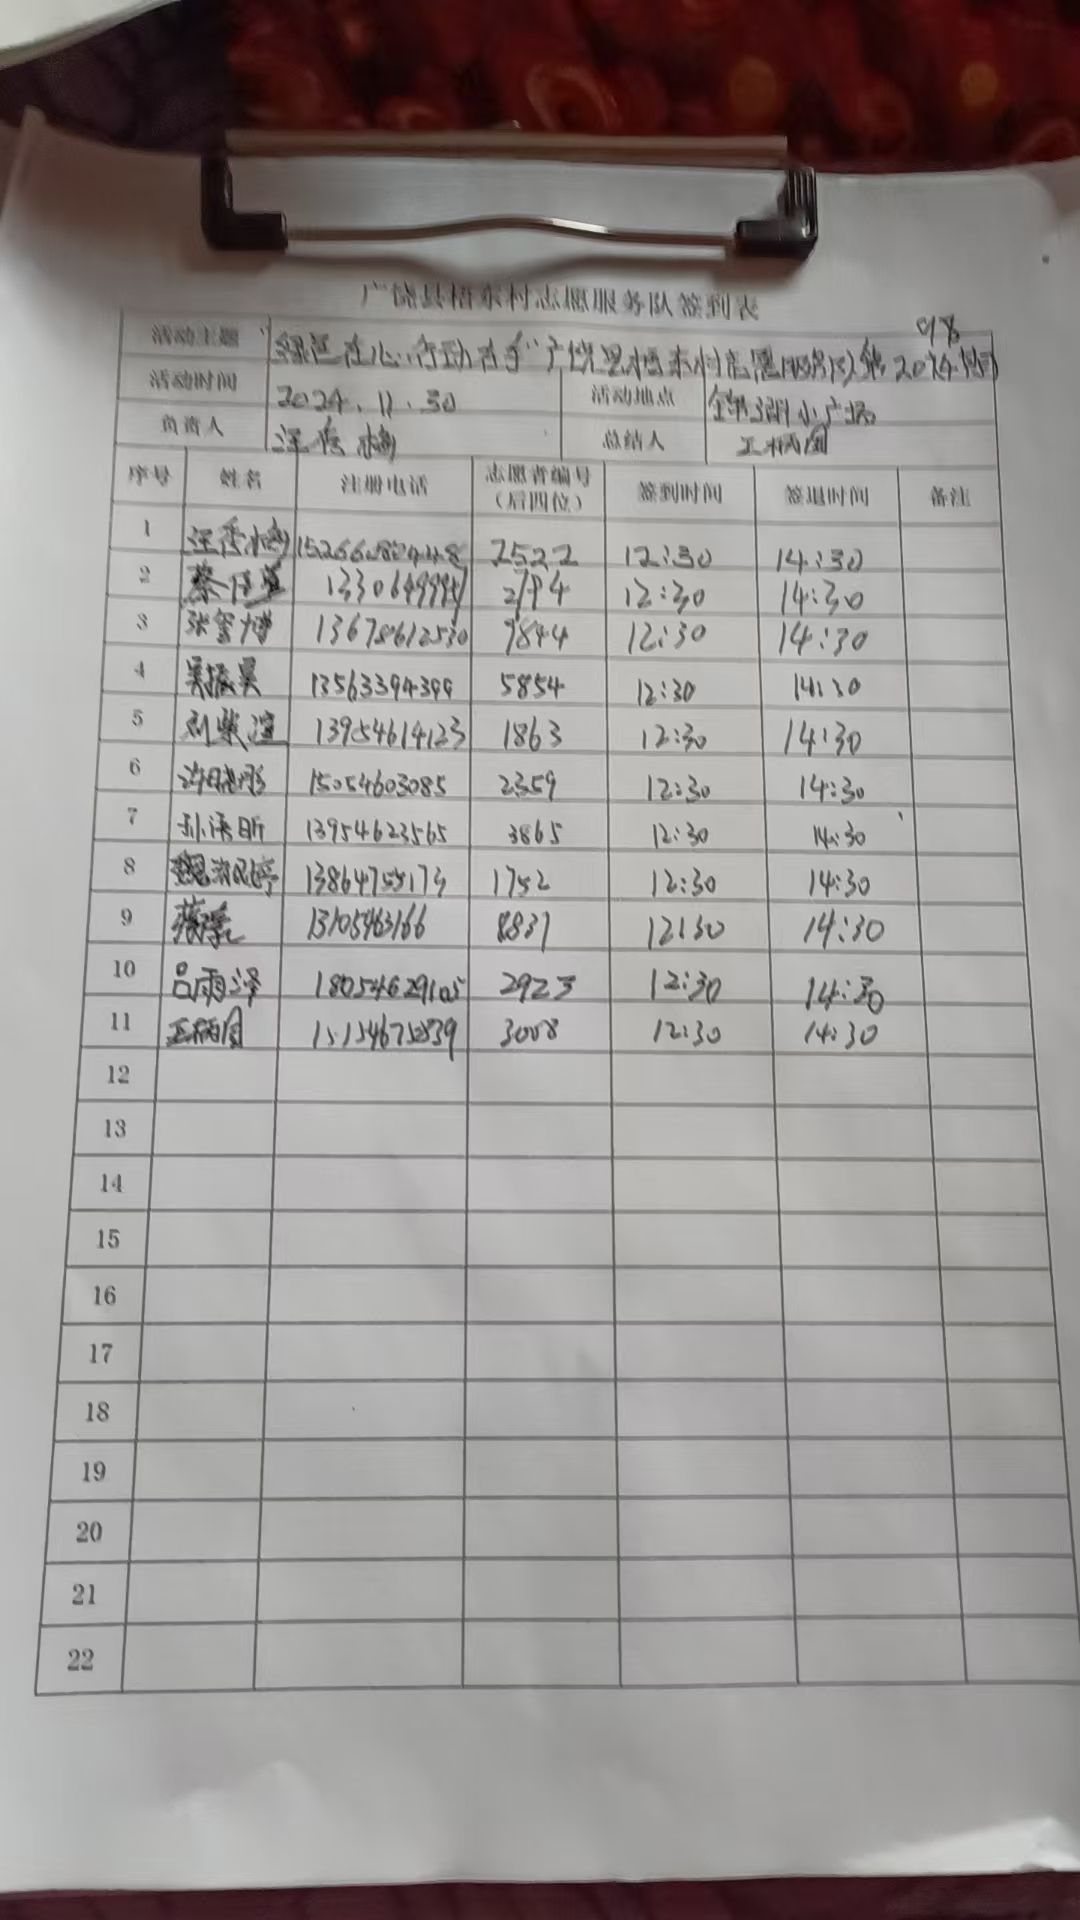 广饶县梧东村志愿服务队签到表
98
活动主题 在心 行动在手"广饶县梧东村志愿服务队第2024
活动时间 2024.11.30 活动地点 小广场
负责人 汪秀梅 总结人 王炳圆
序号 姓名 注册电话 志愿者编号(后四位) 签到时间 签退时间 备注
1 汪秀梅 2522 12:30 14:30
2 12:30 14:30
3 张玺博 13678612530 9844 12:30 14:30
4 吴振昊 13563394399 5854 12:30 14:30
5 刘紫渲 13954614123 1863 12:30 14:30
6 许晓彤 15054603085 2359 12:30 14:30
7 孙语昕 13954623565 3865 12:30 14:30
8 13864755173 1752 12:30 14:30
9 13105463166 8837 12:30 14:30
10 吕雨泽 18054629105 2923 12:30 14:30
11 15154675839 3008 12:30 14:30
12
13
14
15
16
17
18
19
20
21
22